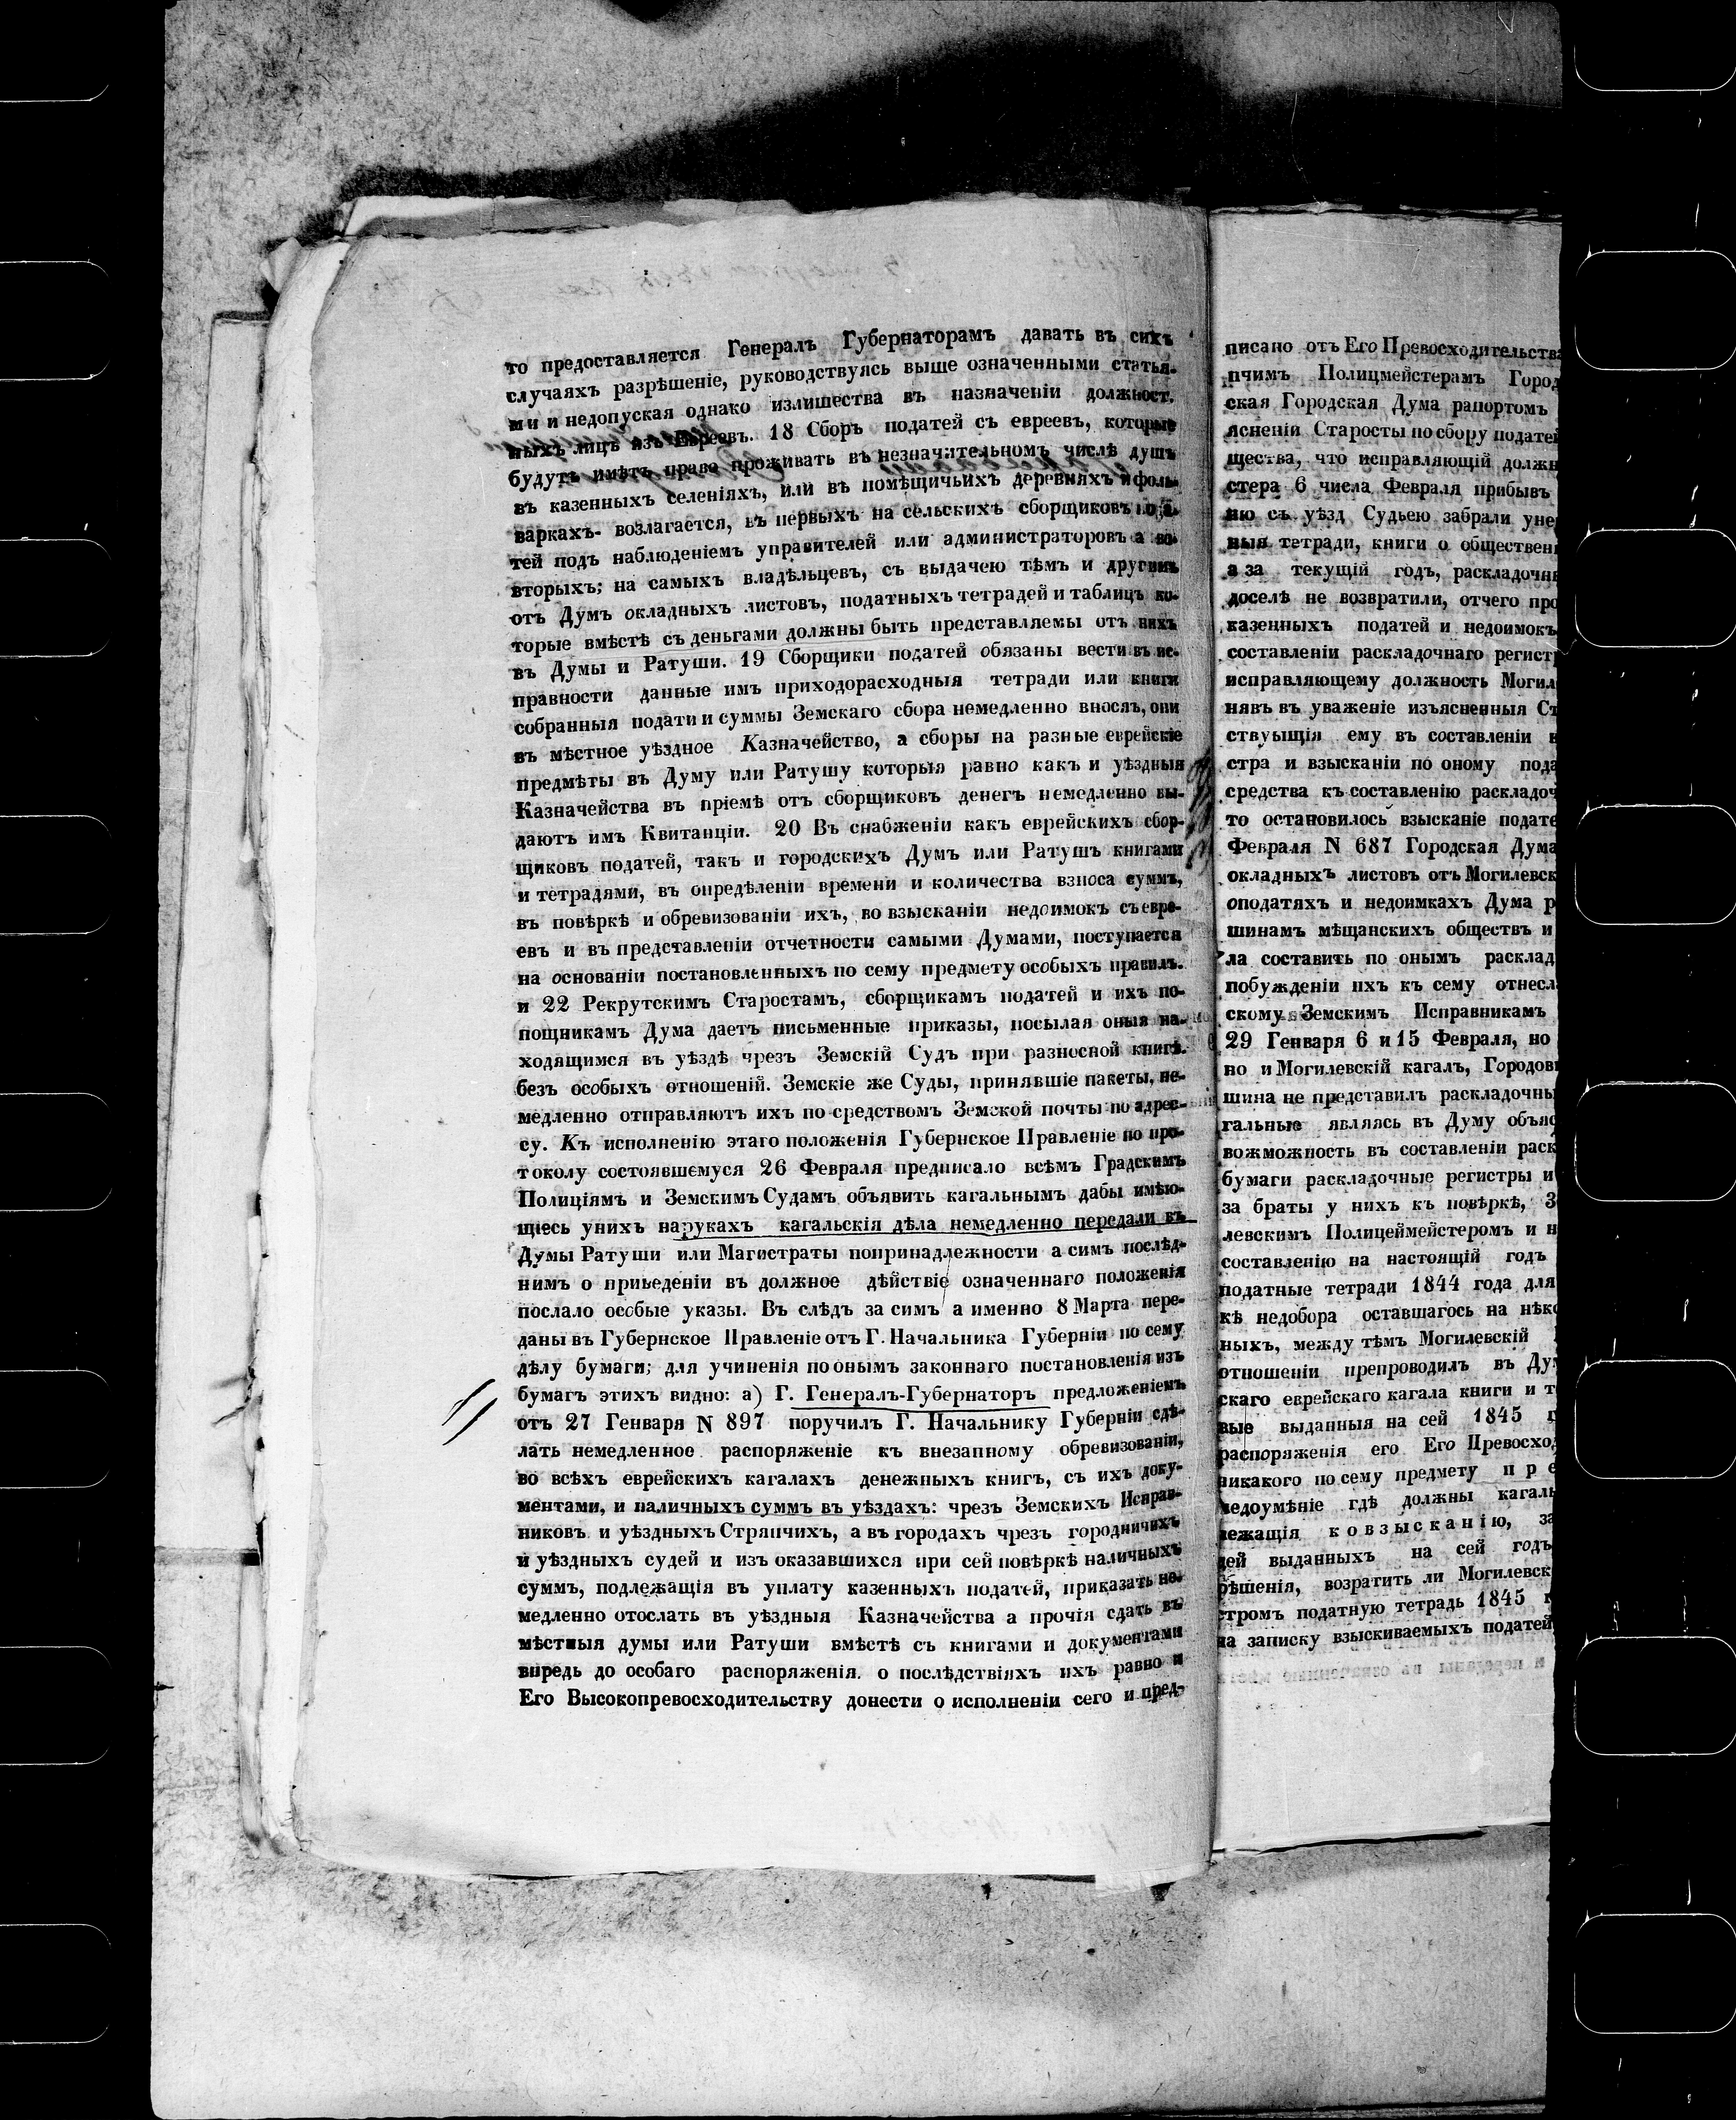 то предоставляется Генералъ Губернаторамъ давать въ сихъ
случаяхъ разрѣшеніе, руководствуясь выше означенными статья-
ми и недопуская однако излишества въ назначеніи должност.
ныхъ лицъ изъ Евреевъ. 18 Сборъ податей съ евреевъ, которые
будутъ имѣть право проживать въ незначительномъ числѣ душъ
въ казенныхъ селеніяхъ, или въ помѣщичьихъ деревняхъ и фоль-
варкахъ- возлагается, въ первыхъ на сельскихъ сборщиковъ пода-
тей подъ наблюденіемъ управителей или администраторовъ а во-
вторыхъ; на самыхъ владѣльцевъ, съ выдачею тѣмъ и другимъ
отъ Думъ окладныхъ листовъ, податныхъ тетрадей и таблицъ ко-
торые вмѣстѣ съ деньгами должны быть представляемы отъ нихъ
въ Думы и Ратуши. 19 Сборщики податей обязаны вести въ ис-
правности данные имъ приходорасходныя тетради или книги
собранныя подати и суммы Земскаго сбора немедленно вносятъ, они
въ мѣстное уѣздное Казначейство, а сборы на разные еврейскіе
предмѣты въ Думу или Ратушу которыя равно какъ и уѣздныя
Казначейства въ пріемѣ отъ сборщиковъ денегъ немедленно вы-
даютъ имъ Квитанціи. 20 Въ снабженіи какъ еврейскихъ сбор-
щиковъ податей, такъ и городскихъ Думъ или Ратушъ книгами
и тетрадями, въ опредѣленіи времени и количества взноса суммъ,
въ повѣркѣ и обревизованіи ихъ, во взысканіи недоимокъ съ евре-
евъ и въ представленіи отчетности самыми Думами, поступается
на основаніи постановленныхъ по сему предмету особыхъ правилъ.
и 22 Рекрутскимъ Старостамъ, сборщикамъ податей и ихъ по-
пощникамъ Дума даетъ письменные приказы, посылая оныя на-
ходящимся въ уѣздѣ чрезъ Земскій Судъ при разносной книгѣ.
безъ особыхъ отношеній. Земскіе же Суды, принявшіе пакеты, не-
медленно отправляютъ ихъ по средствомъ Земской почты по адрес-
су. Къ исполненію этаго положенія Губернское Правленіе по про-
токолу состоявшемуся 26 Февраля предписало всѣмъ Градскимъ
Полиціямъ и Земскимъ Судамъ объявить кагальнымъ дабы имѣю-
щіесь унихъ нарукахъ кагальскія дѣла немедленно передали въ
Думы Ратуши или Магистраты попринадлежности а симъ послѣд-
нимъ о приведеніи въ должное дѣйствіе означеннаго положенія
послало особые указы. Въ слѣдъ за симъ а именно 8 Марта пере-
даны въ Губернское Правленіе отъ Г. Начальника Губерніи по сему
дѣлу бумаги; для учиненія по онымъ законнаго постановленія изъ
бумагъ этихъ видно: а) Г. Генералъ-Губернаторъ предложеніемъ
отъ 27 Генваря N 897 поручилъ Г. Начальнику Губерніи сдѣ-
лать немедленное распоряженіе къ внезапному обревизованіи,
во всѣхъ еврейскихъ кагалахъ денежныхъ книгъ, съ ихъ доку-
ментами, и наличныхъ суммъ въ уѣздахъ: чрезъ Земскихъ Исправ-
никовъ и уѣздныхъ Стряпчихъ, а въ городахъ чрезъ городничихъ
и уѣздныхъ судей и изъ оказавшихся при сей повѣркѣ наличныхъ
суммъ, подлежащія въ уплату казенныхъ податей, приказать не-
медленно отослать въ уѣздныя Казначейства а прочія сдать въ
мѣстныя думы или Ратуши вмѣстѣ съ книгами и документами
впредь до особаго распоряженія. о послѣдствіяхъ ихъ равно и
Его Высокопревосходительству донести о исполненіи сего и пред-
писано отъ Его Превосходительства
пчимъ Полицмейстерамъ Город
ская Городская Дума рапортомъ
ясненіи Старосты по сбору податей
щества, что исправляющій должн
стера 6 числа Февраля прибывъ
ню съ уѣзд Судьею забрали уне
ныя тетради, книги о обществен
а за текущій годъ, раскладочн
доселѣ не возвратили, отчего про
казенныхъ податей и недоимокъ
составленіи раскладочнаго регист
исправляющему должность Могил
нявъ въ уваженіе изъясненныя Ст
ствуыщія ему въ составленіи
стра и взысканіи по оному пода
средства къ составленію раскладоч
то остановилось взысканіе подате
Февраля N 687 Городская Дума
окладныхъ листовъ отъ Могилевск
оподатяхъ и недоимкахъ Дума р
шинамъ мѣщанскихъ обществъ и
ла составить по онымъ расклад
побужденіи ихъ къ сему отнесл
скому Земскимъ Исправникамъ
29 Генваря 6 и 15 Февраля, но
но и Могилевскій кагалъ, Городов
шина не представилъ раскладочны
гальные являясь въ Думу объяс
вожможность въ составленіи раск
бумаги раскладочные регистры и
за браты у нихъ къ повѣркѣ, З
левскимъ Полицеймейстеромъ и н
составленію на настоящій годъ
податные тетради 1844 года для
кѣ недобора оставшагось на нѣко
ныхъ, между тѣмъ Могилевскій
отношеніи препроводилъ въ Ду
скаго еврейскаго кагала книги и т
вые выданныя на сей 1845 г
распоряженія его Его Превосход
никакого по сему предмету пре
недоумѣніе гдѣ должны кагаль
лежащія ковзысканію, за
дей выданныхъ на сей годъ
рѣшенія, возратить ли Могилевск
стромъ податную тетрадь 1845 г
на записку взыскиваемыхъ податей